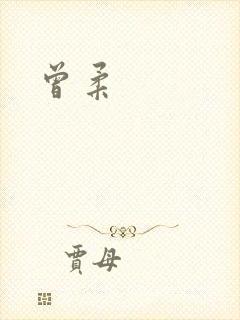 曾柔
賈母